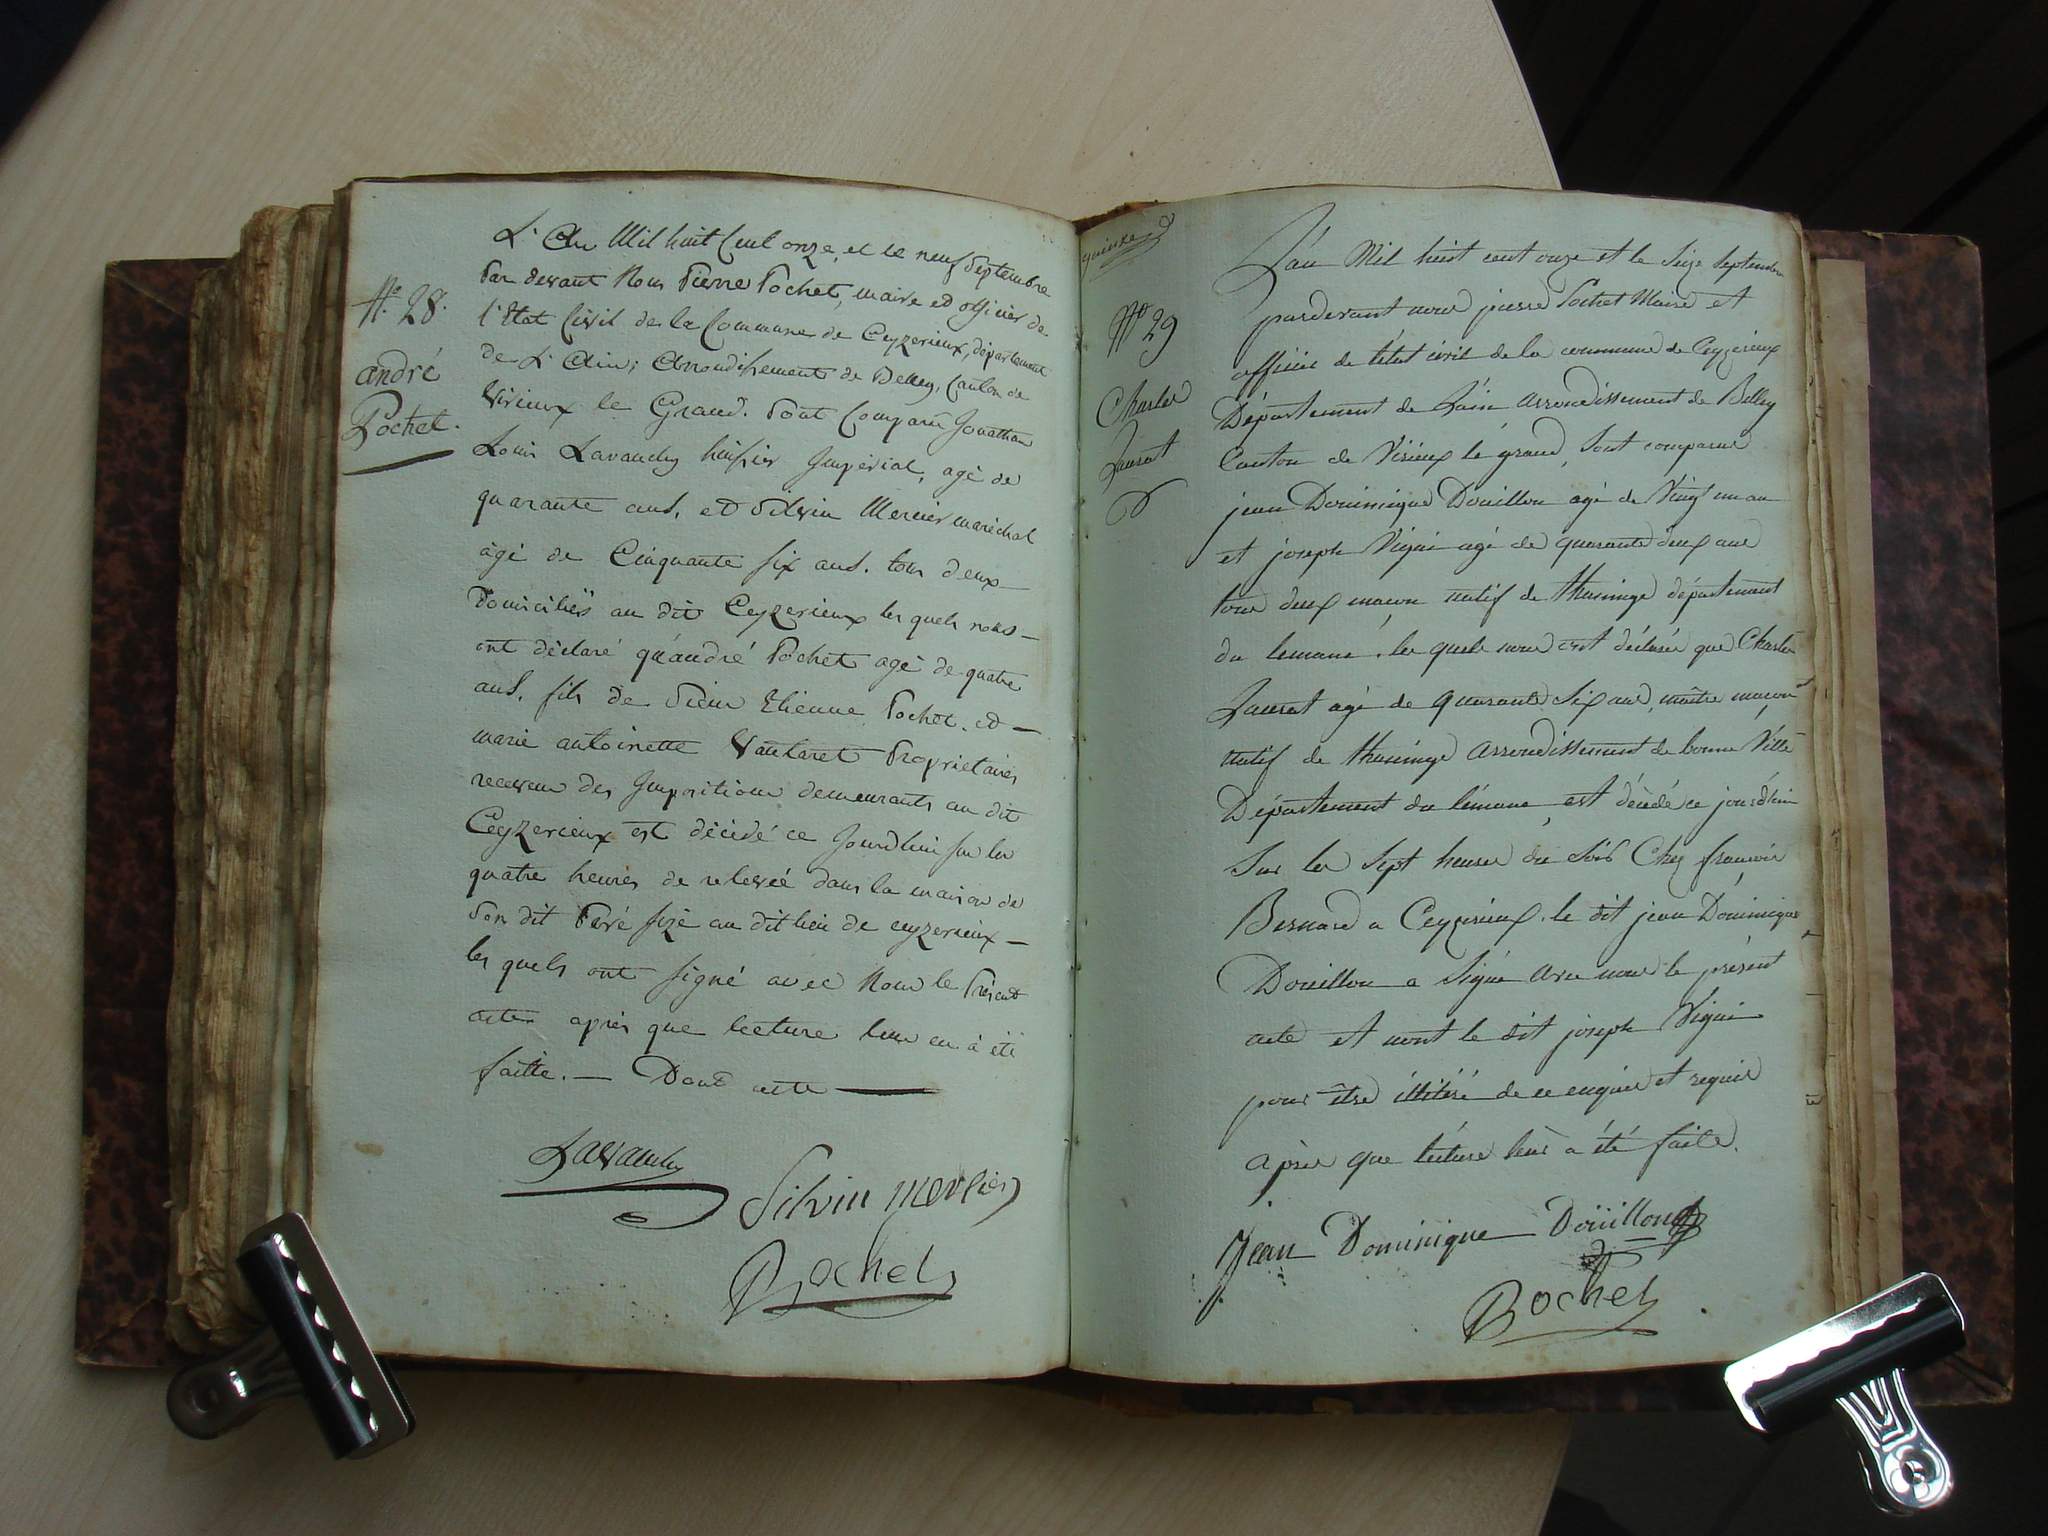 N.° 28.
andré
Pochet.
L'An Mil huit Cent onze, et le neuf Septembre
Par devant Nous Pierre Pochet, maire et officier de
l'Etat Civil de la Commune de Ceyzerieux, département
de L'Ain; Arrondissement de Belley, Canton de
Virieux le Grand. Sont Comparu Jonathan
Louis Lavanchy huissier Imperial, agé de
quarante ans, et Silvin Mercier maréchal
âgé de Cinquante six ans. tous deux
Domiciliés au dit Ceyzerieux les quels nous
ont déclaré qu'andré Pochet agé de quatre
ans, fils de Sieur Etienne Pochet et
marie antoinette Vautaret Proprietaires
receveur des Impositions demeurants au dit
Ceyzerieux est décédé ce Jourdhui sur les
quatre heures de relevée dans la maison de
Son dit Peré sizé au dit lieu de ceyzerieux
les quels ont signé avec Nous le Présent
acte après que lecture leur en à été
faitte. — Dont acte
Lavanchy
Silvin mercier
Pochet
quinze
N° 29
Charles
Laurat
L'an Mil huit cent onze et le Seize Septembre
pardevant nous pierre Pochet Maire et
officier de l'état civil de la commune de Ceyzerieux
Département de L'ain arrondissement de Belley
Canton de Virieux le grand, Sont comparus
jean Dominique Doüillon agé de Vingt un an
et joseph Vigni agé de quarante deux ans
tous deux macon natif de thusinge département
du lemane, les quels nous ont déclarés que Charles
Laurat agé de quarante Six ans, maître maçon
natif de thusinge arrondissement de bonne Ville
Département du lémane, est décédé ce jourd'hui
Sur les Sept heures du Soir Chez francois
Bernard a Ceyzerieux. le dit jean Dominique
Doüillon a Signé avec nous le présent
acte et nont le dit joseph Vigni
pour être illitéré de ce enquis et requis
Après que lécture leur a été faite.
Jean Dominique Doüillon
Pochet